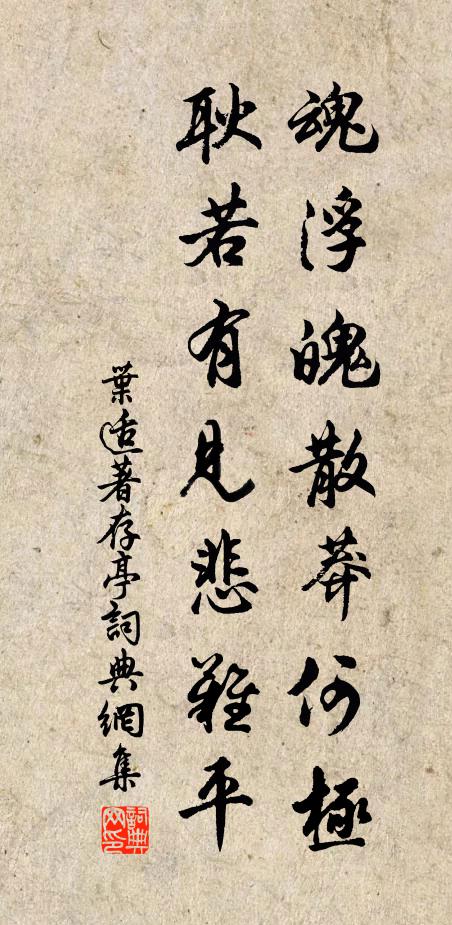 魂浮魄散莽何極
耿若有見悲難平
葉適著存亭詞典網集
詞典网印